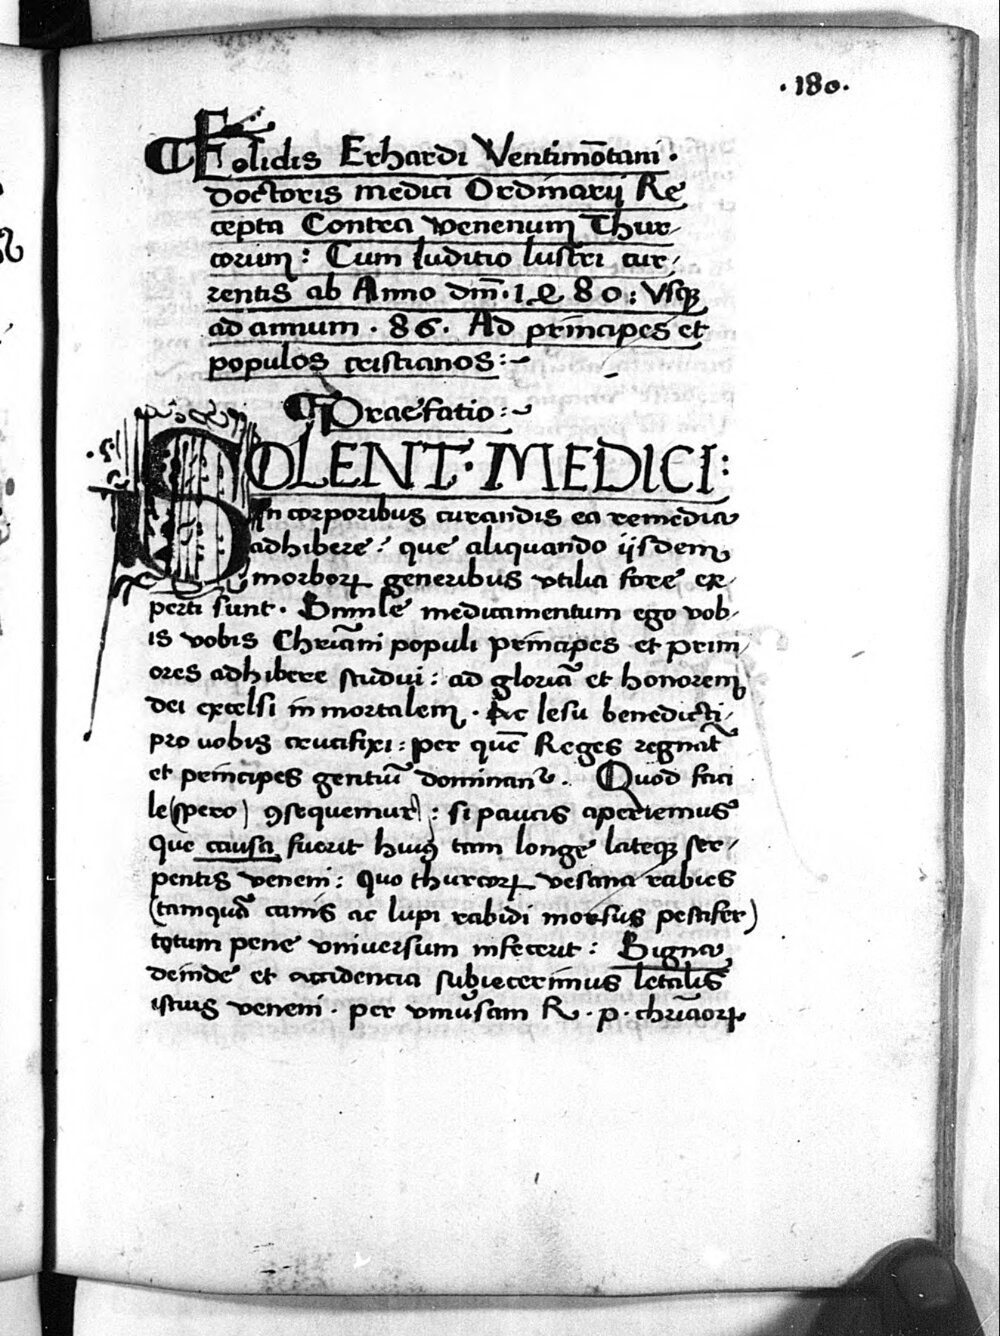 ·180·
Eolidis Erhardi Ventimōtani·
doctoris medici Ordinarij Re
cepta Contra venenum Thur/
corum: Cum Iuditio lustri cur/
rentis ab Anno dm̄·1480: Vsq
ad annum·86· Ad principes et
populos cristianos:~
Praefatio:~
SOLENT·MEDICI:
In corporibus curandis ea remedia
adhibere: que aliquando ijsdem
morboꝝ generibus vtilia fore ex/
perti sunt· Simile medicamentum ego vob/
is vobis Chriāni populi principes et prim/
ores adhibere studui: ad gloriā et honorem
dei excelsi in mortalem· Ac Iesu benedicti/
pro uobis crucifixi: per quē Reges regnāt
et principes gentiū dominant~· Quod faci
le (spero) ꝯsequemur: si paucis aperiemus
que causa fuerit huiꝰ tam longe lateqꝫ ser/
pentis veneni: quo thurcoꝝ vesana rabies
(tamquā canis ac lupi rabidi morsus pestifer)
totum pene vniuersum infecerit: Signa
deinde et accidencia subiecerimus letalis
istius veneni· per vniūsam R·p·chriāoꝝ